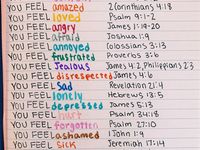 YOU FEEL amazed 2 Corinthians 4:18
YOU FEEL loved Psalm 9:1-2
YOU FEEL angry James 1:19-20
YOU FEEL afraid Joshua 1:9
YOU FEEL annoyed Colossians 3:13
YOU FEEL frustrated Proverbs 3:6
YOU FEEL Jealous James 4:2, Philippians 2:3
YOU FEEL disrespected James 4:6
YOU FEEL Sad Revelation 21:4
YOU FEEL lonely Hebrews 13:5
YOU FEEL depressed James 5:13
YOU FEEL hurt Psalm 34:18
YOU FEEL forgotten Psalm 27:10
YOU FEEL ashamed 1 John 1:9
YOU FEEL Sick Jeremiah 17:14